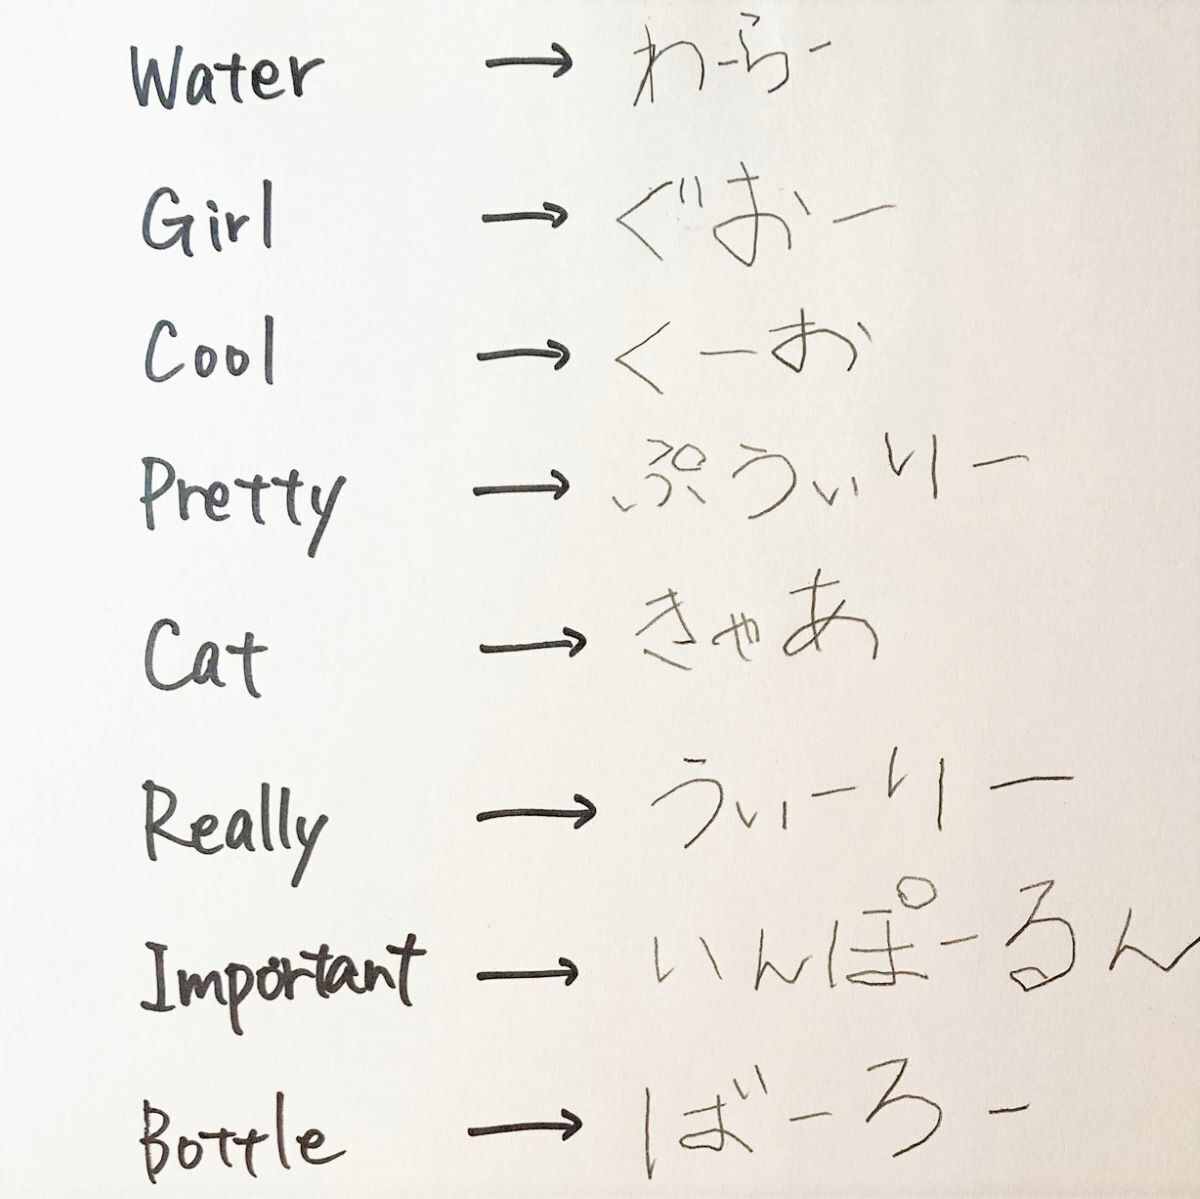 Water → わーらー
Girl → ぐおー
Cool → くーお
Pretty → ぷうぃりー
Cat → きゃあ
Really → うぃーりー
Important → いんぽーるん
Bottle → ばーろー